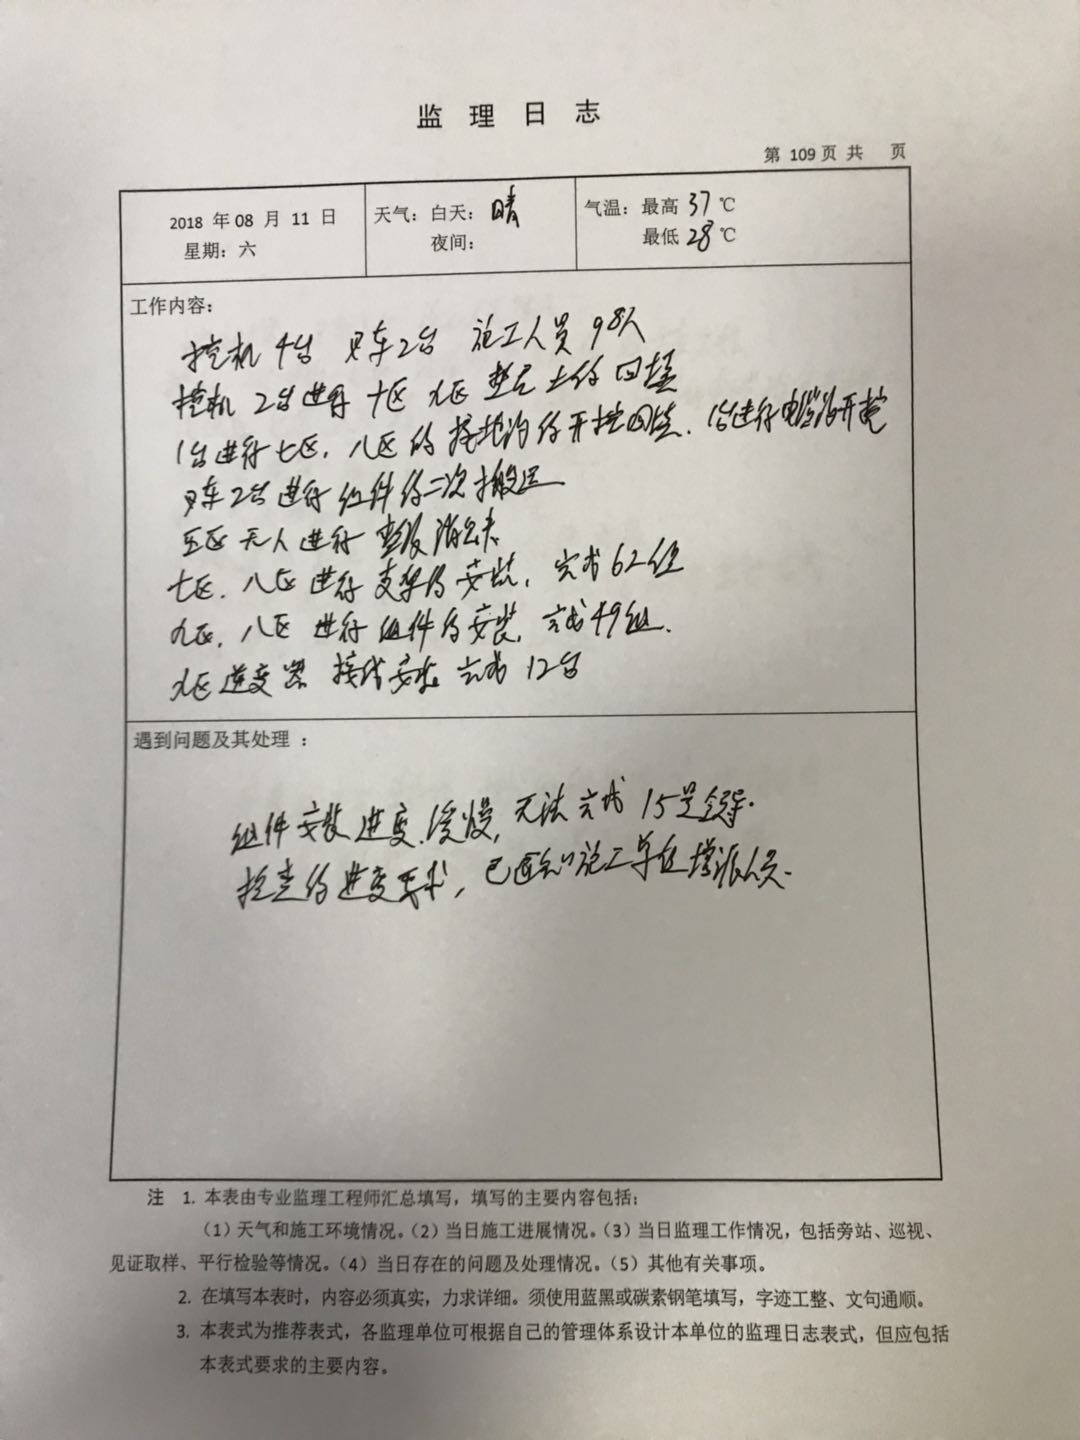 监理日志
第 109 页 共 页
2018 年 08 月 11 日
星期：六
天气：白天：晴
夜间：
气温：最高 37 ℃
最低 28 ℃
工作内容：
挖机4台 叉车2台 施工人员98人
挖机2台进行十区 九区 土的回填
1台进行七区，八区的接地沟的开挖回填．1台进行电缆沟开挖
叉车2台进行组件的二次搬运
五区 无人进行 消缺
七区．八区进行支架的安装，完成62组
九区，八区 进行组件的安装，完成49组．
九区逆变器 接线安装 完成12台
遇到问题及其处理 ：
组件安装进度缓慢，无法完成15号领导
检查的进度要求，已通知施工单位增派人员．
注 1. 本表由专业监理工程师汇总填写，填写的主要内容包括：
（1）天气和施工环境情况。（2）当日施工进展情况。（3）当日监理工作情况，包括旁站、巡视、
见证取样、平行检验等情况。（4）当日存在的问题及处理情况。（5）其他有关事项。
2. 在填写本表时，内容必须真实，力求详细。须使用蓝黑或碳素钢笔填写，字迹工整、文句通顺。
3. 本表式为推荐表式，各监理单位可根据自己的管理体系设计本单位的监理日志表式，但应包括
本表式要求的主要内容。